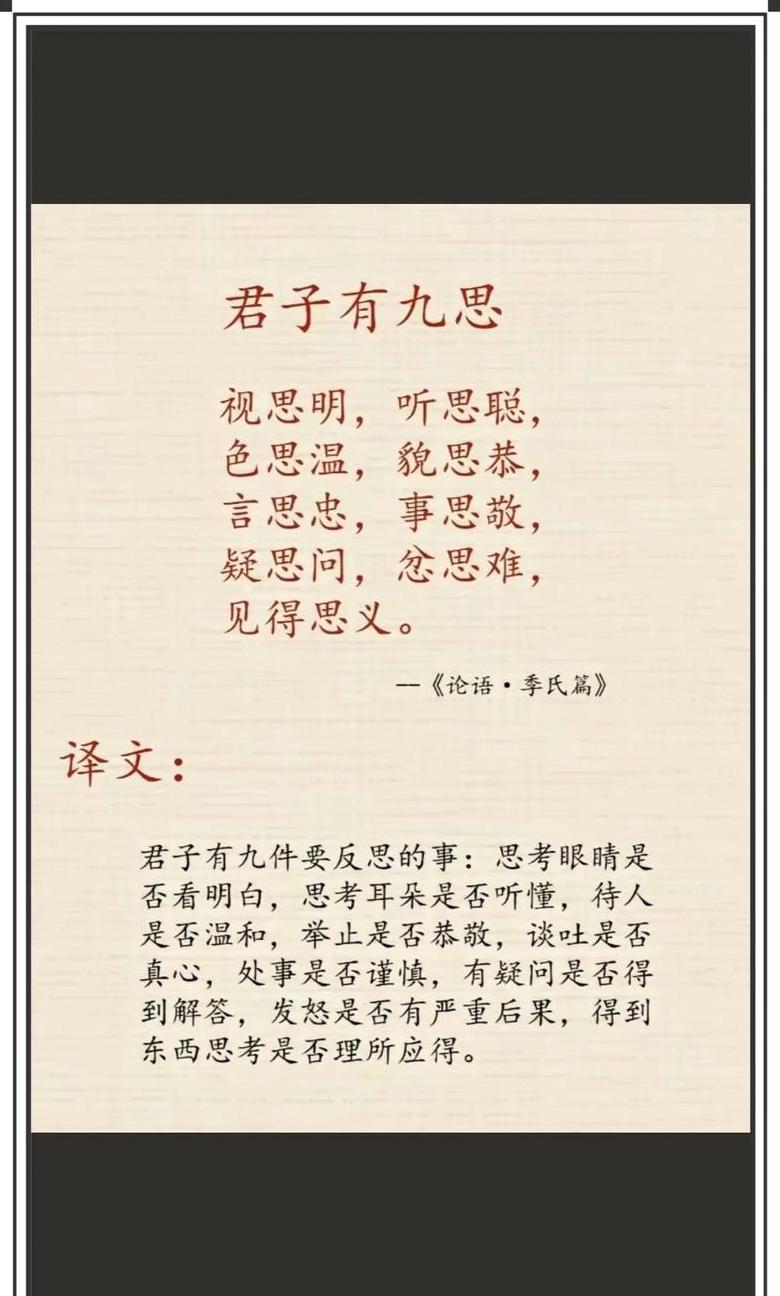 君子有九思
视思明，听思聪，
色思温，貌思恭，
言思忠，事思敬，
疑思问，忿思难，
见得思义。
--《论语·季氏篇》
译文：
君子有九件要反思的事：思考眼睛是
否看明白，思考耳朵是否听懂，待人
是否温和，举止是否恭敬，谈吐是否
真心，处事是否谨慎，有疑问是否得
到解答，发怒是否有严重后果，得到
东西思考是否理所应得。